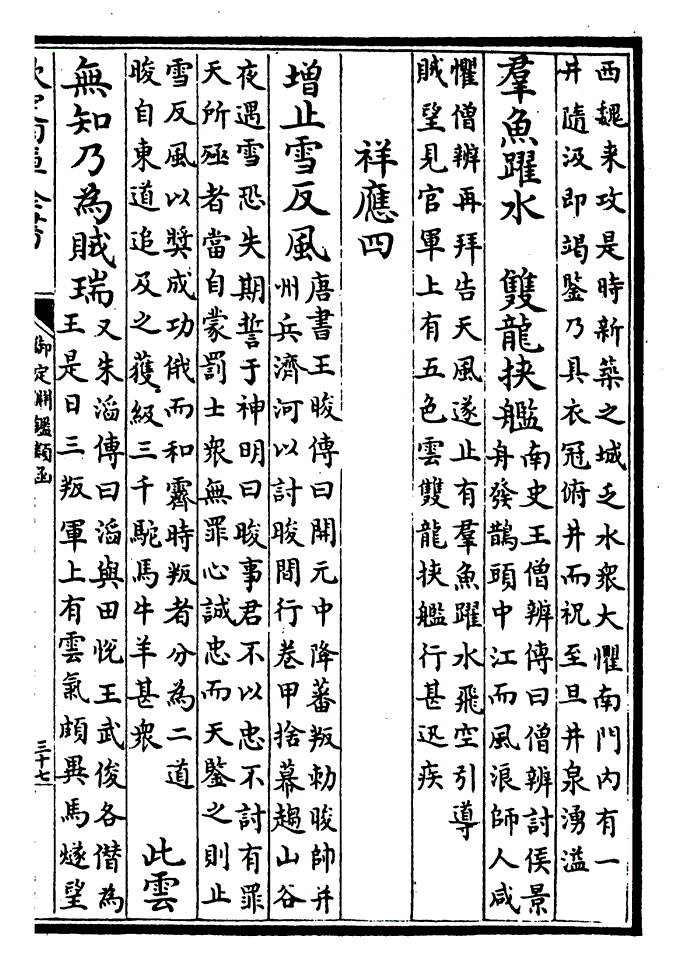 西魏来攻是時新築之城乏水衆大懼南門内有一
井隨汲即竭鑒乃具衣冠俯井而祝至旦井泉湧溢
羣魚躍水　雙龍挾艦
南史王僧辨傳曰僧辨討侯景
舟發鵲頭中江而風浪師人咸
懼僧辨再拜告天風遂止有羣魚躍水飛空引導
賊望見官軍上有五色雲雙龍挾艦行甚迅疾
祥應四
增止雪反風
唐書王晙傳曰開元中降蕃叛勅晙帥并
州兵濟河以討晙間行卷甲捨幕趨山谷
夜遇雪恐失期誓于神明曰晙事君不以忠不討有罪
天所殛者當自蒙罰士衆無罪心誠忠而天鑒之則止
雪反風以獎成功俄而和霽時叛者分為二道
晙自東道追及之獲級三千駝馬牛羊甚衆
此雲
無知乃為賊瑞
又朱滔傳曰滔與田悅王武俊各僭為
王是日三叛軍上有雲氣頗異馬燧望
御定淵鑑類函
三十七